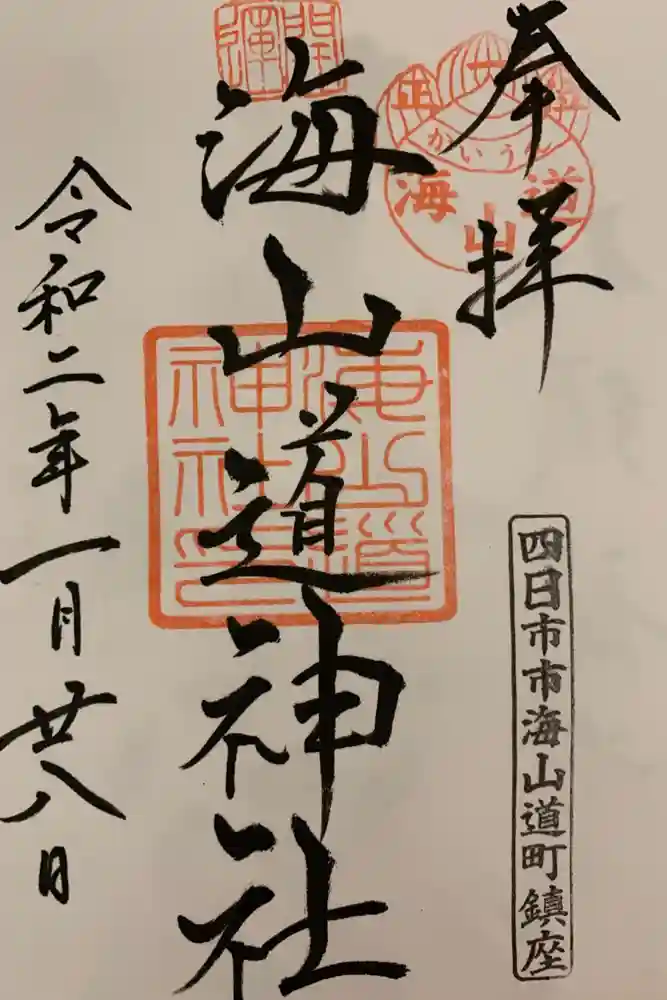 奉拝
海山道神社
令和二年一月廿八日
四日市市海山道町鎮座
開運
かいうん
海山道
海山道神社印